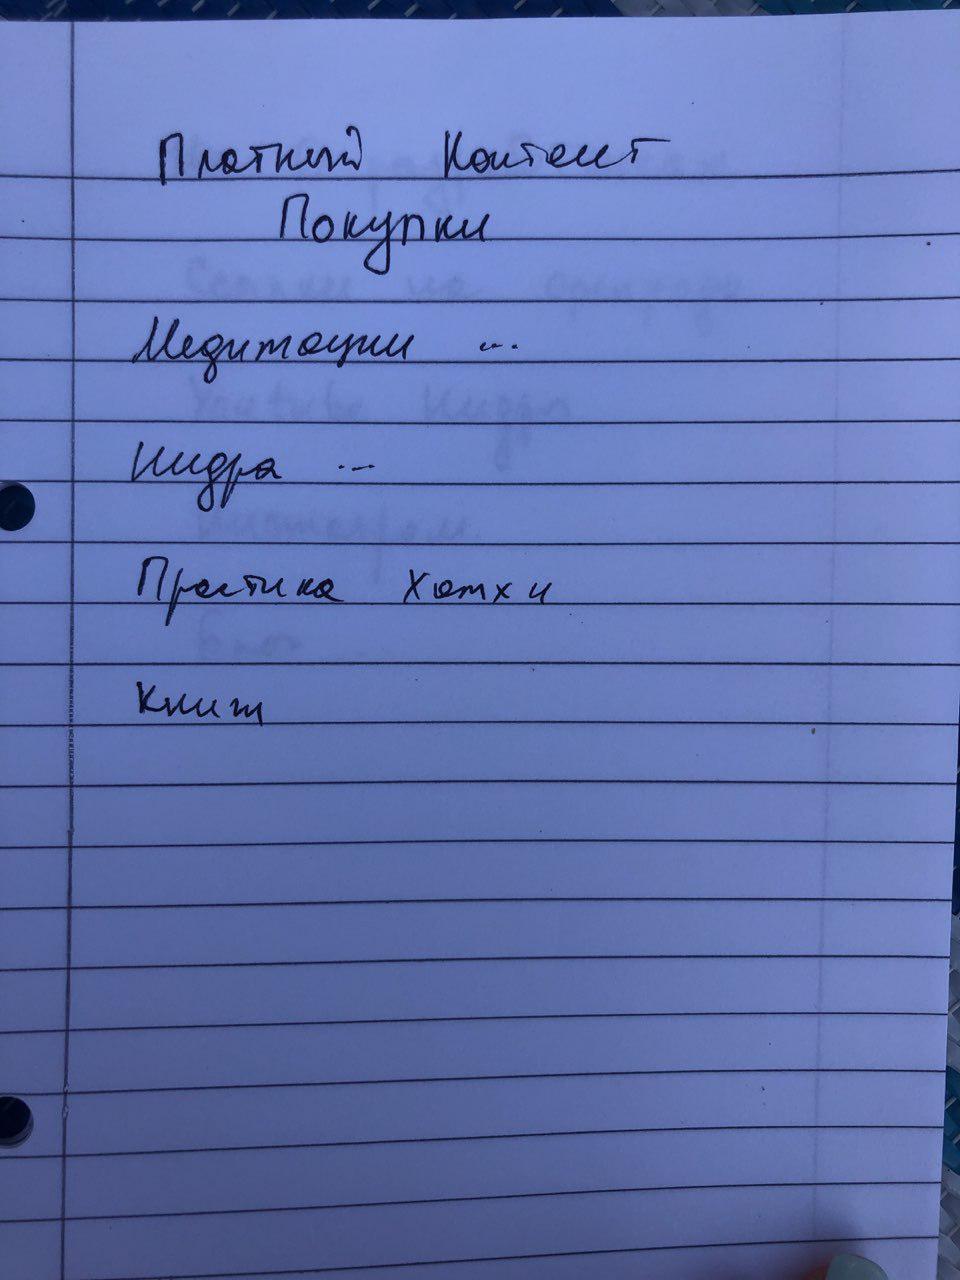 Платный Контент
Покупки
Медитации ...
Нидра ...
Практика Хатхи